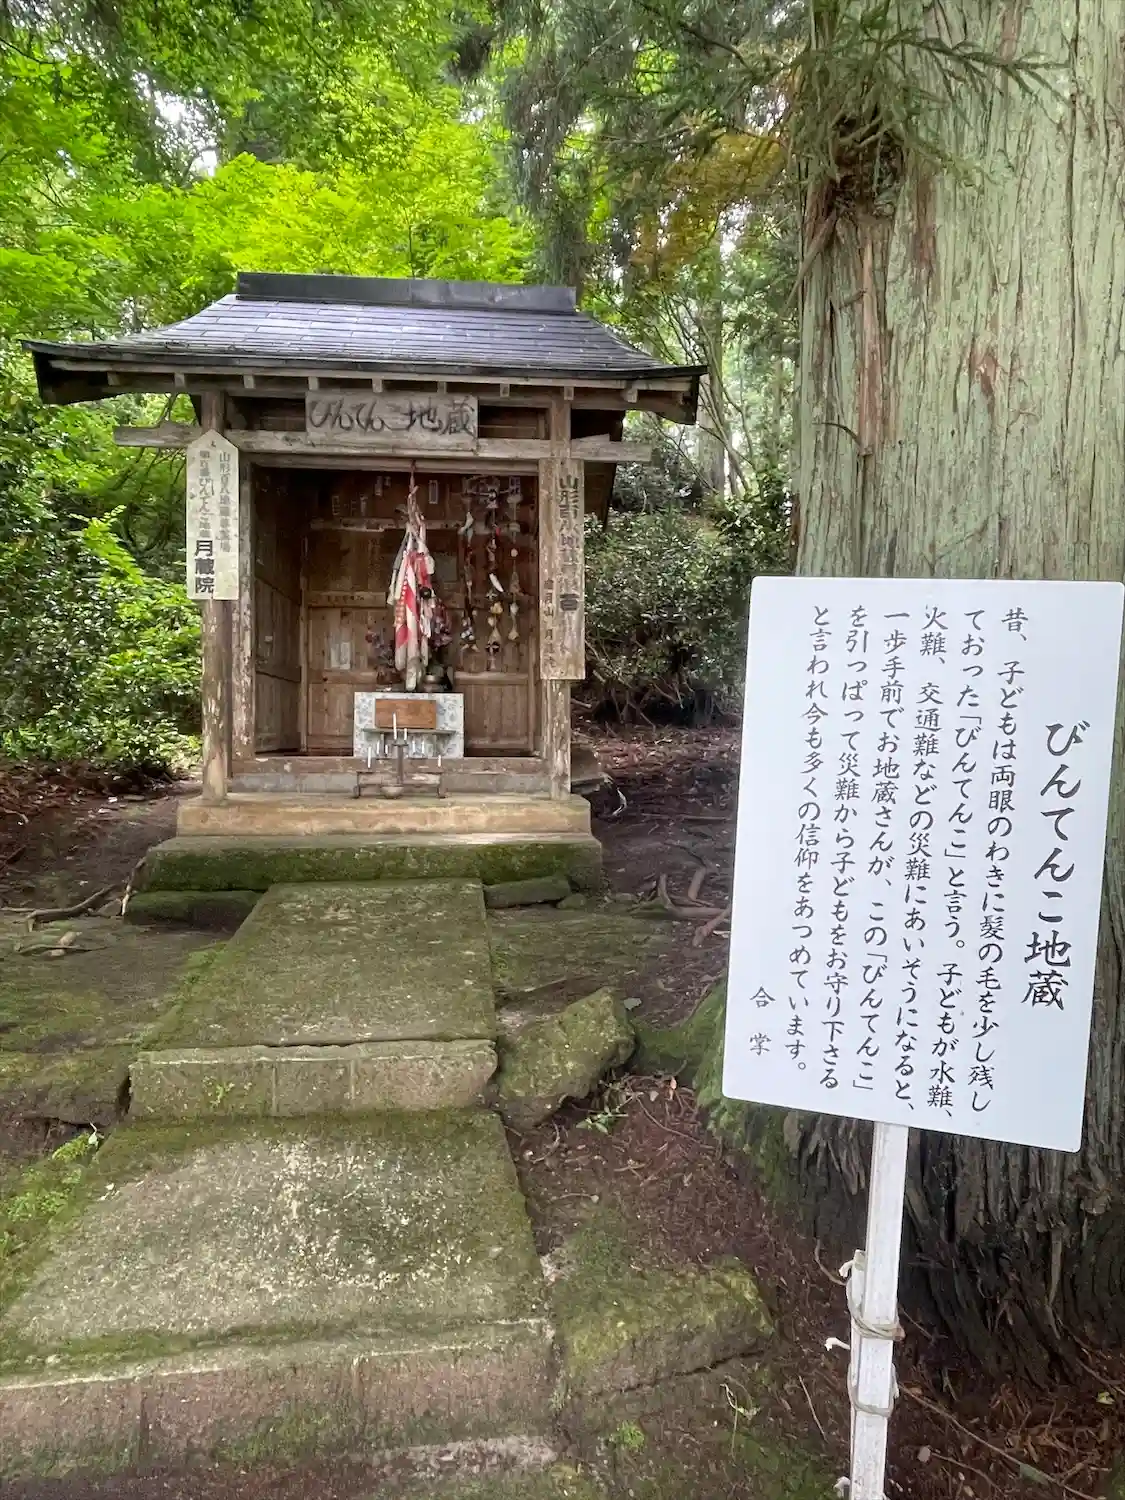 びんてんこ地蔵
昔、子どもは両眼のわきに髪の毛を少し残し
ておった「びんてんこ」と言う。子どもが水難、
火難、交通難などの災難にあいそうになると、
一歩手前でお地蔵さんが、この「びんてんこ」
を引っぱって災難から子どもをお守り下さる
と言われ今も多くの信仰をあつめています。
合掌
びんてんこ地蔵
月蔵院